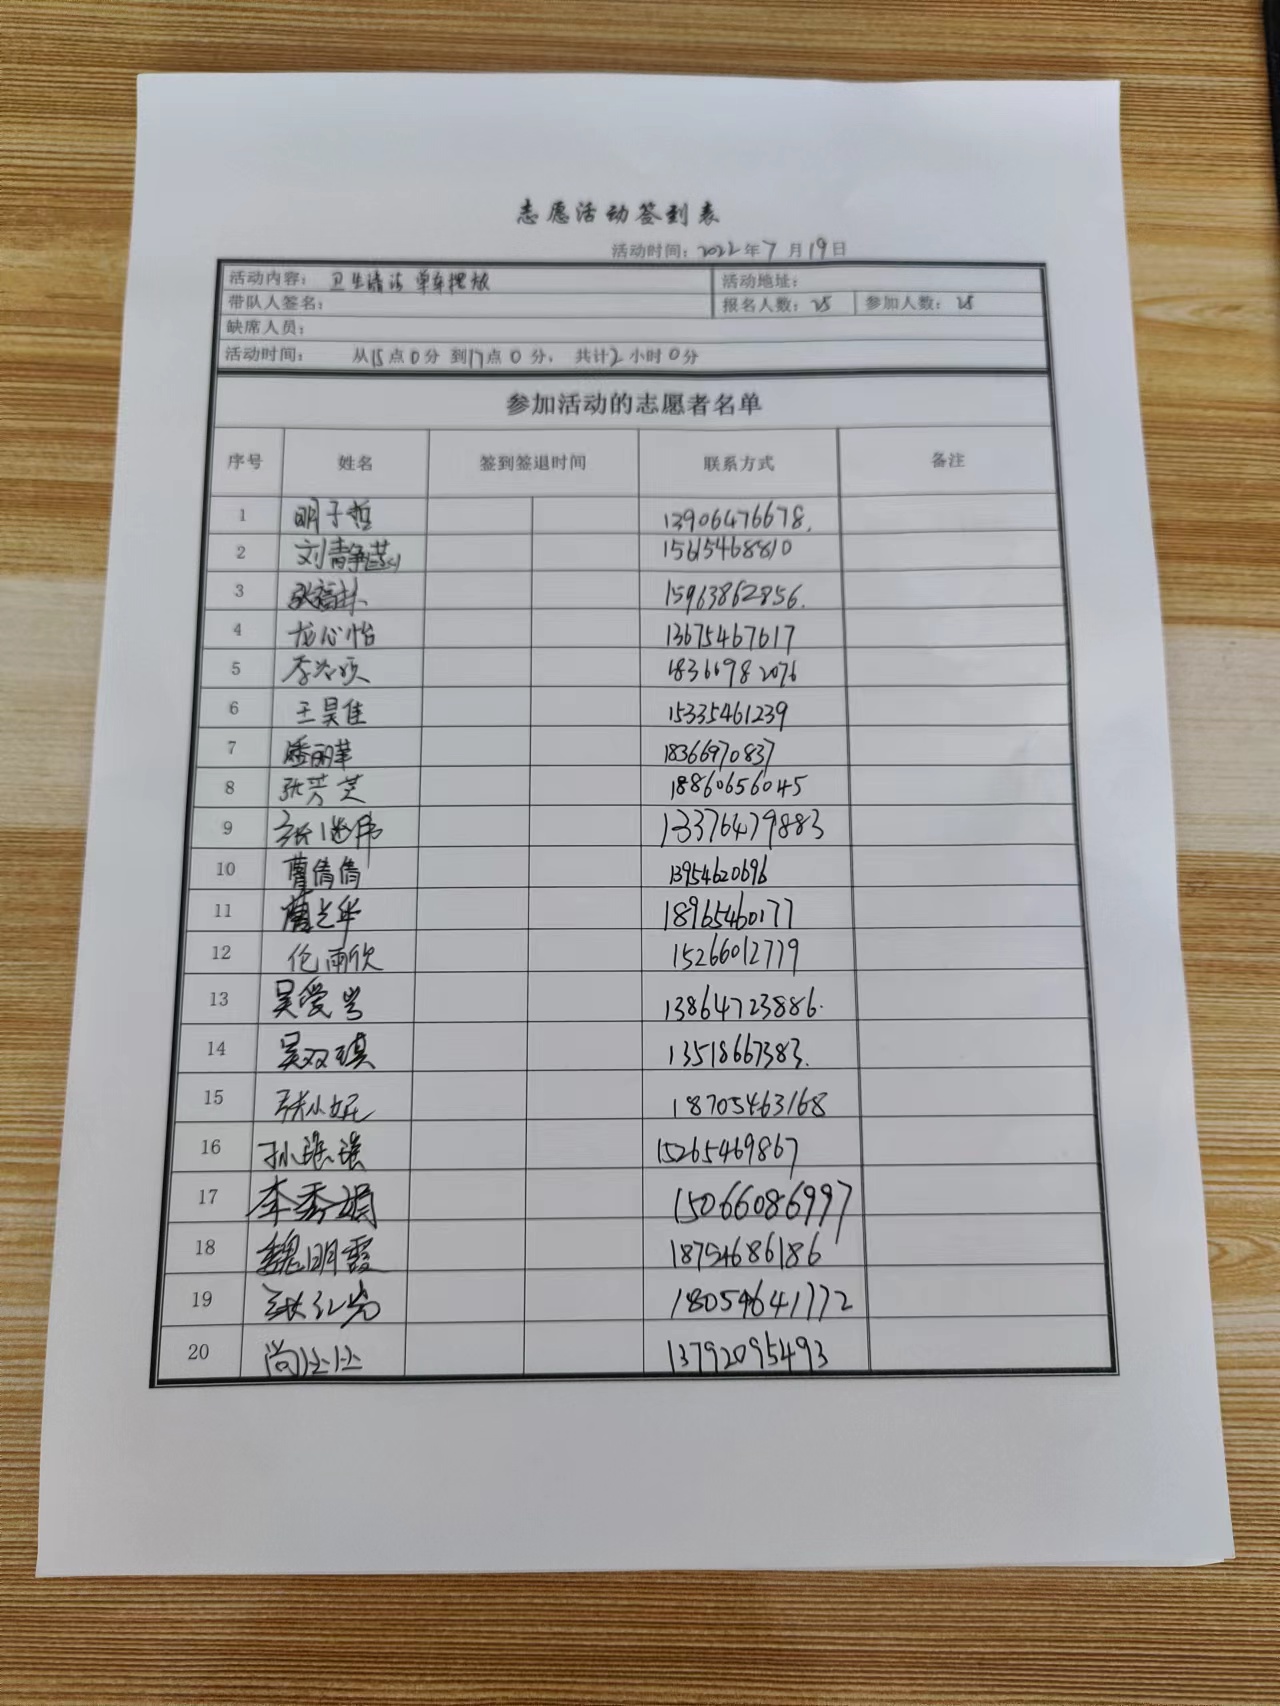 志愿活动签到表
活动时间：2022年7月19日
活动内容：卫生清洁 单车摆放 活动地址：
带队人签名： 报名人数：25 参加人数：25
缺席人员：
活动时间： 从15点0分 到17点0分， 共计2小时0分
参加活动的志愿者名单
序号 姓名 签到签退时间 联系方式 备注
1 明子哲 13906476678.
2 刘静 15615468810
3 15963862856.
4 龙心怡 13675467617
5 李 18366982076
6 王昊佳 15335461239
7 潘丽华 18366970837
8 张芳芝 18860656045
9 张继伟 13376479883
10 曹倩倩 13954620696
11 18965460177
12 伦雨欣 15266012779
13 吴爱 13864723886.
14 吴双琪 13518667383.
15 张小妮 18705463168
16 孙 15265469867
17 李秀娟 15066086997
18 魏明霞 18754686186
19 张红岩 18054641772
20 尚 13792095493